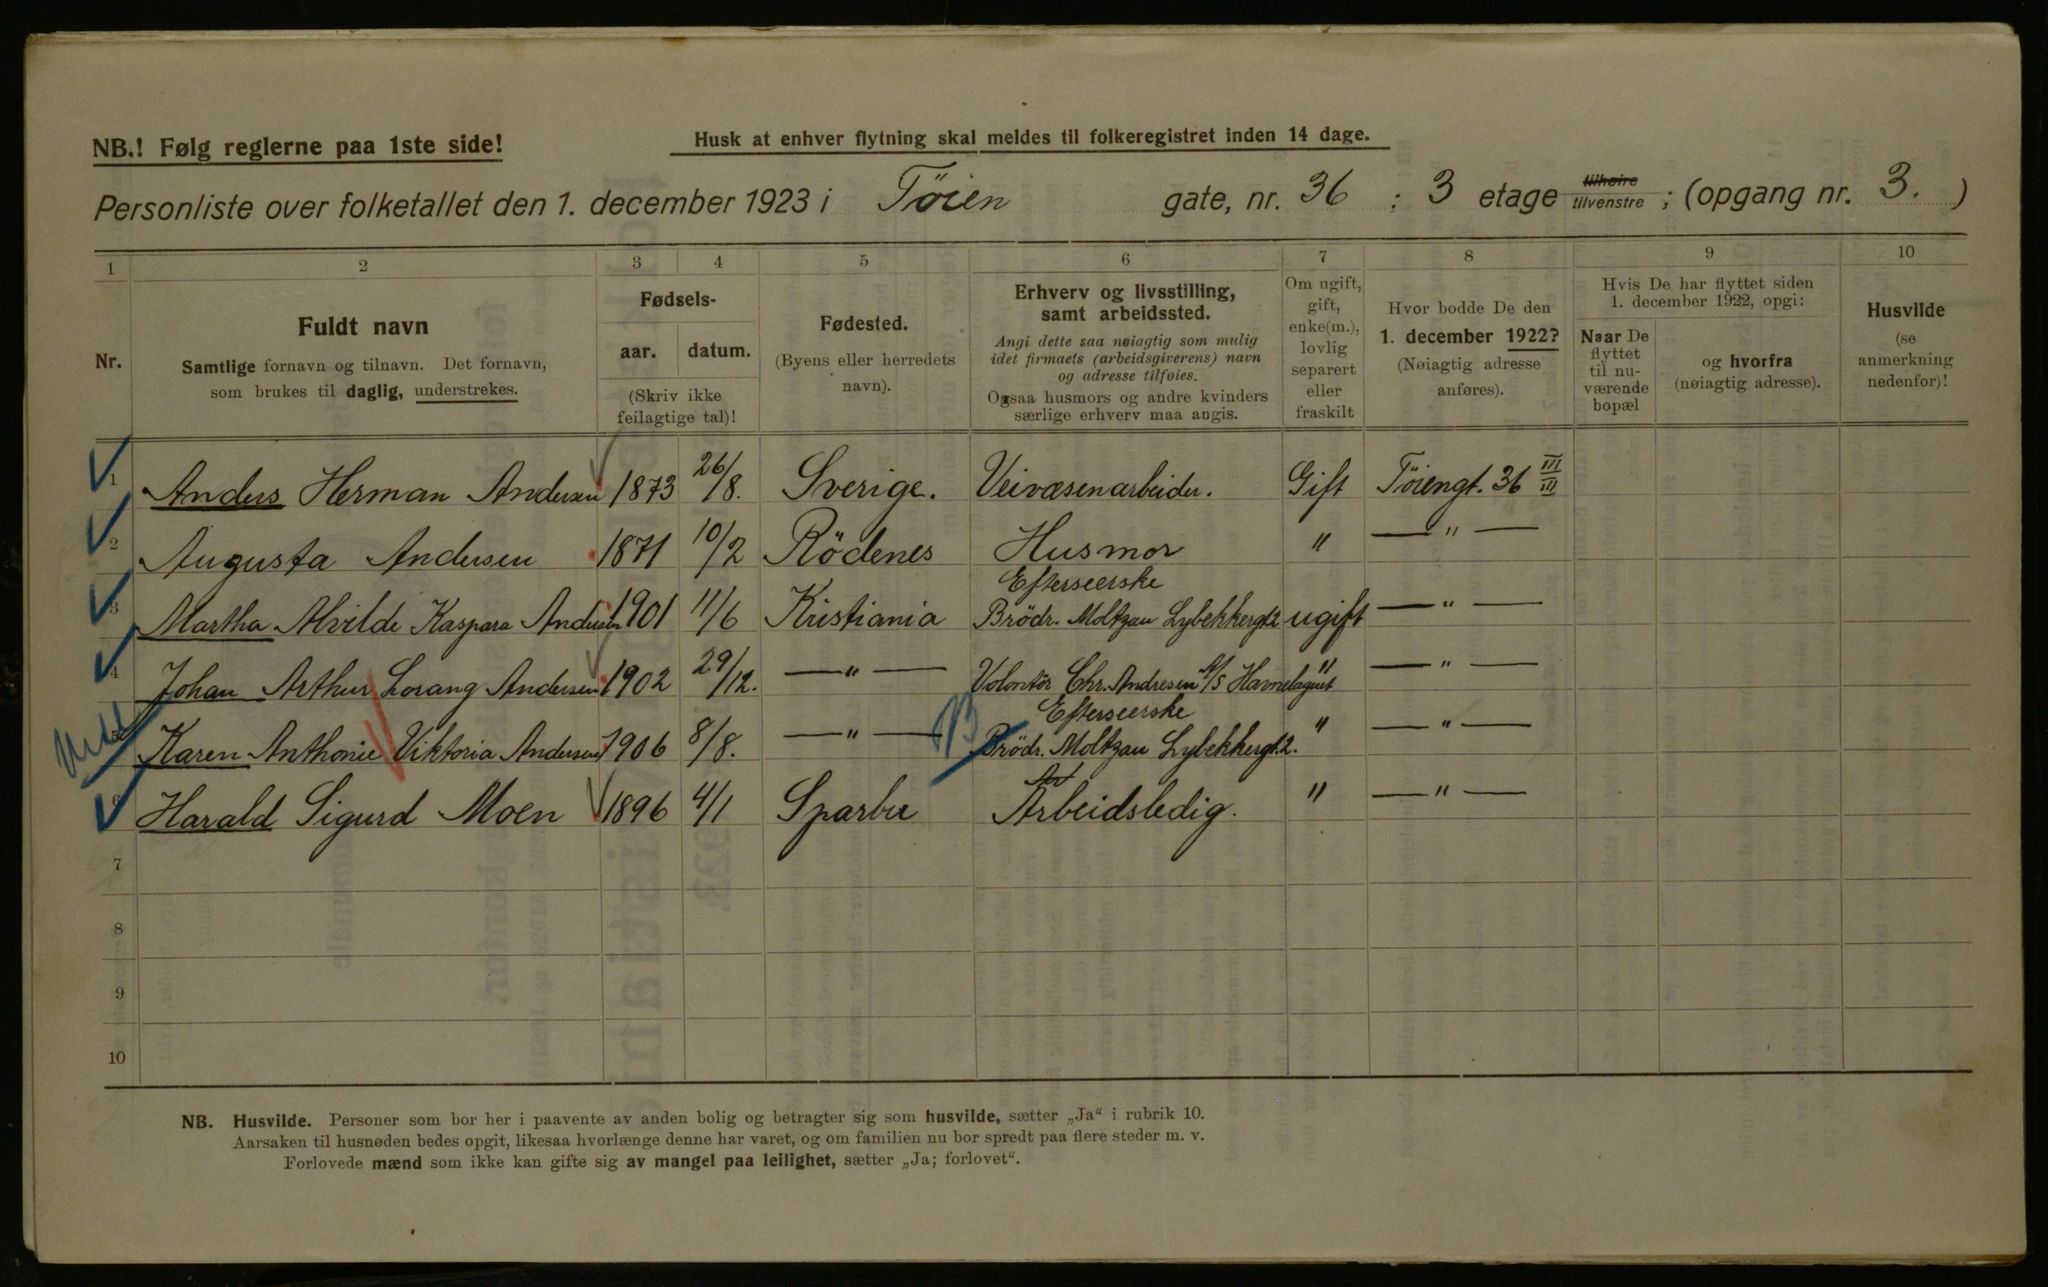 NB.! Følg reglerne paa 1ste side!
Husk at enhver flytning skal meldes til folkeregistret inden 14 dage.
Personliste over folketallet den 1. december 1923 i Tøien gate, nr. 36 : 3 etage tilhøire tilvenstre ; (opgang nr. 3. )
1 2 3 4 5 6 7 8 9 10
Nr.
Fuldt navn
Samtlige fornavn og tilnavn. Det fornavn,
som brukes til daglig, understrekes.
Fødsels-
aar. datum.
(Skriv ikke
feilagtige tal)!
Fødested.
(Byens eller herredets
navn).
Erhverv og livsstilling,
samt arbeidssted.
Angi dette saa nøiagtig som mulig
idet firmaets (arbeidsgiverens) navn
og adresse tilføies.
Ogsaa husmors og andre kvinders
særlige erhverv maa angis.
Om ugift,
gift,
enke(m.),
lovlig
separert
eller
fraskilt
Hvor bodde De den
1. december 1922?
(Nøiagtig adresse
anføres).
Hvis De har flyttet siden
1. december 1922, opgi:
Naar De
flyttet
til nu-
værende
bopæl
og hvorfra
(nøiagtig adresse).
Husvilde
(se
anmerkning
nedenfor)!
1 Anders Herman Andersen 1873 26/8. Sverige. Veivæsenarbeider. Gift Tøiengt. 36 III/III
2 Augusta Andersen 1871 10/2 Rödenes Husmor " — " —
Efterseerske
3 Martha Alvilde Kaspara Andersen 1901 11/6 Kristiania Brödr. Moltzau Lybekkergt 2 ugift — " —
4 Johan Arthur Lorang Andersen 1902 29/12. — " — Volontör Chr. Andresen A/S Havnelageret " — " —
Efterseerske
5 Karen Anthonie Viktoria Andersen 1906 8/8. — " — Brödr. Moltzau Lybekkergt. 2. " — " —
6 Harald Sigurd Moen 1896 4/1 Sparbu Arbeidsledig. " — " —
7
8
9
10
NB. Husvilde. Personer som bor her i paavente av anden bolig og betragter sig som husvilde, sætter „Ja“ i rubrik 10.
Aarsaken til husnøden bedes opgit, likesaa hvorlænge denne har varet, og om familien nu bor spredt paa flere steder m. v.
Forlovede mænd som ikke kan gifte sig av mangel paa leilighet, sætter „Ja; forlovet“.